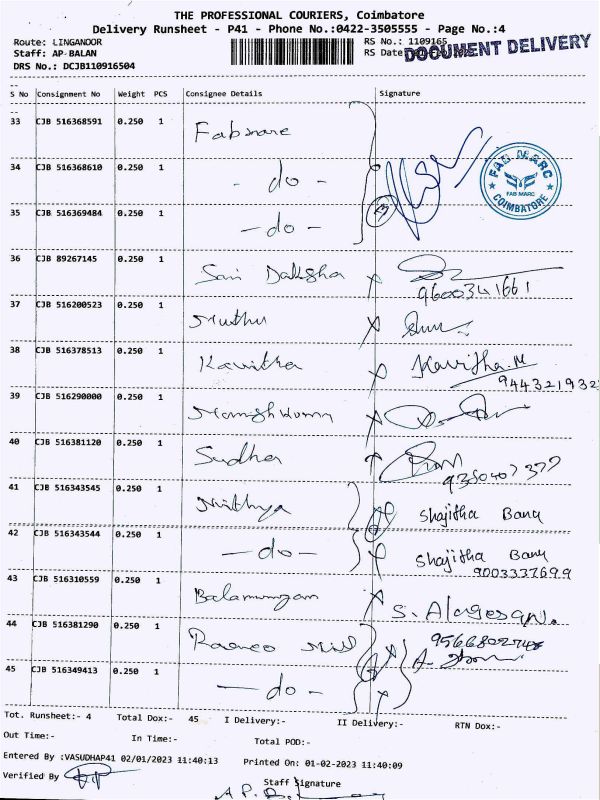 THE PROFESSIONAL COURIERS, Coimbatore
Delivery Runsheet - P41 - Phone No.:0422-3505555 - Page No.:4
Route: LINGANOOR
Staff: AP-BALAN
DRS No.: DCJB110916504
RS No.: 1109165
RS Date
DOCUMENT DELIVERY
S No Consignment No Weight PCS Consignee Details Signature
33 CJB 516368591 0.250 1 Fabmare
34 CJB 516368610 0.250 1 - do -
35 CJB 516369484 0.250 1 - do -
FAB MARC
FAB MARC
COIMBATORE
36 CJB 89267145 0.250 1 Sai Daksha
9600341661
37 CJB 516200523 0.250 1 Muthu
38 CJB 516378513 0.250 1 Kavitha Kavitha.M
944321932
39 CJB 516290000 0.250 1
40 CJB 516381120 0.250 1 Sudha
41 CJB 516343545 0.250 1 Nithya Shajitha Banu
42 CJB 516343544 0.250 1 - do - Shajitha Banu
9003337699
43 CJB 516310559 0.250 1 Balamurugan S. Alagesan.
44 CJB 516381290 0.250 1
45 CJB 516349413 0.250 1 - do -
Tot. Runsheet:- 4 Total Dox:- 45 I Delivery:- II Delivery:- RTN Dox:-
Out Time:- In Time:- Total POD:-
Entered By :VASUDHAP41 02/01/2023 11:40:13 Printed On: 01-02-2023 11:40:09
Verified By Staff Signature